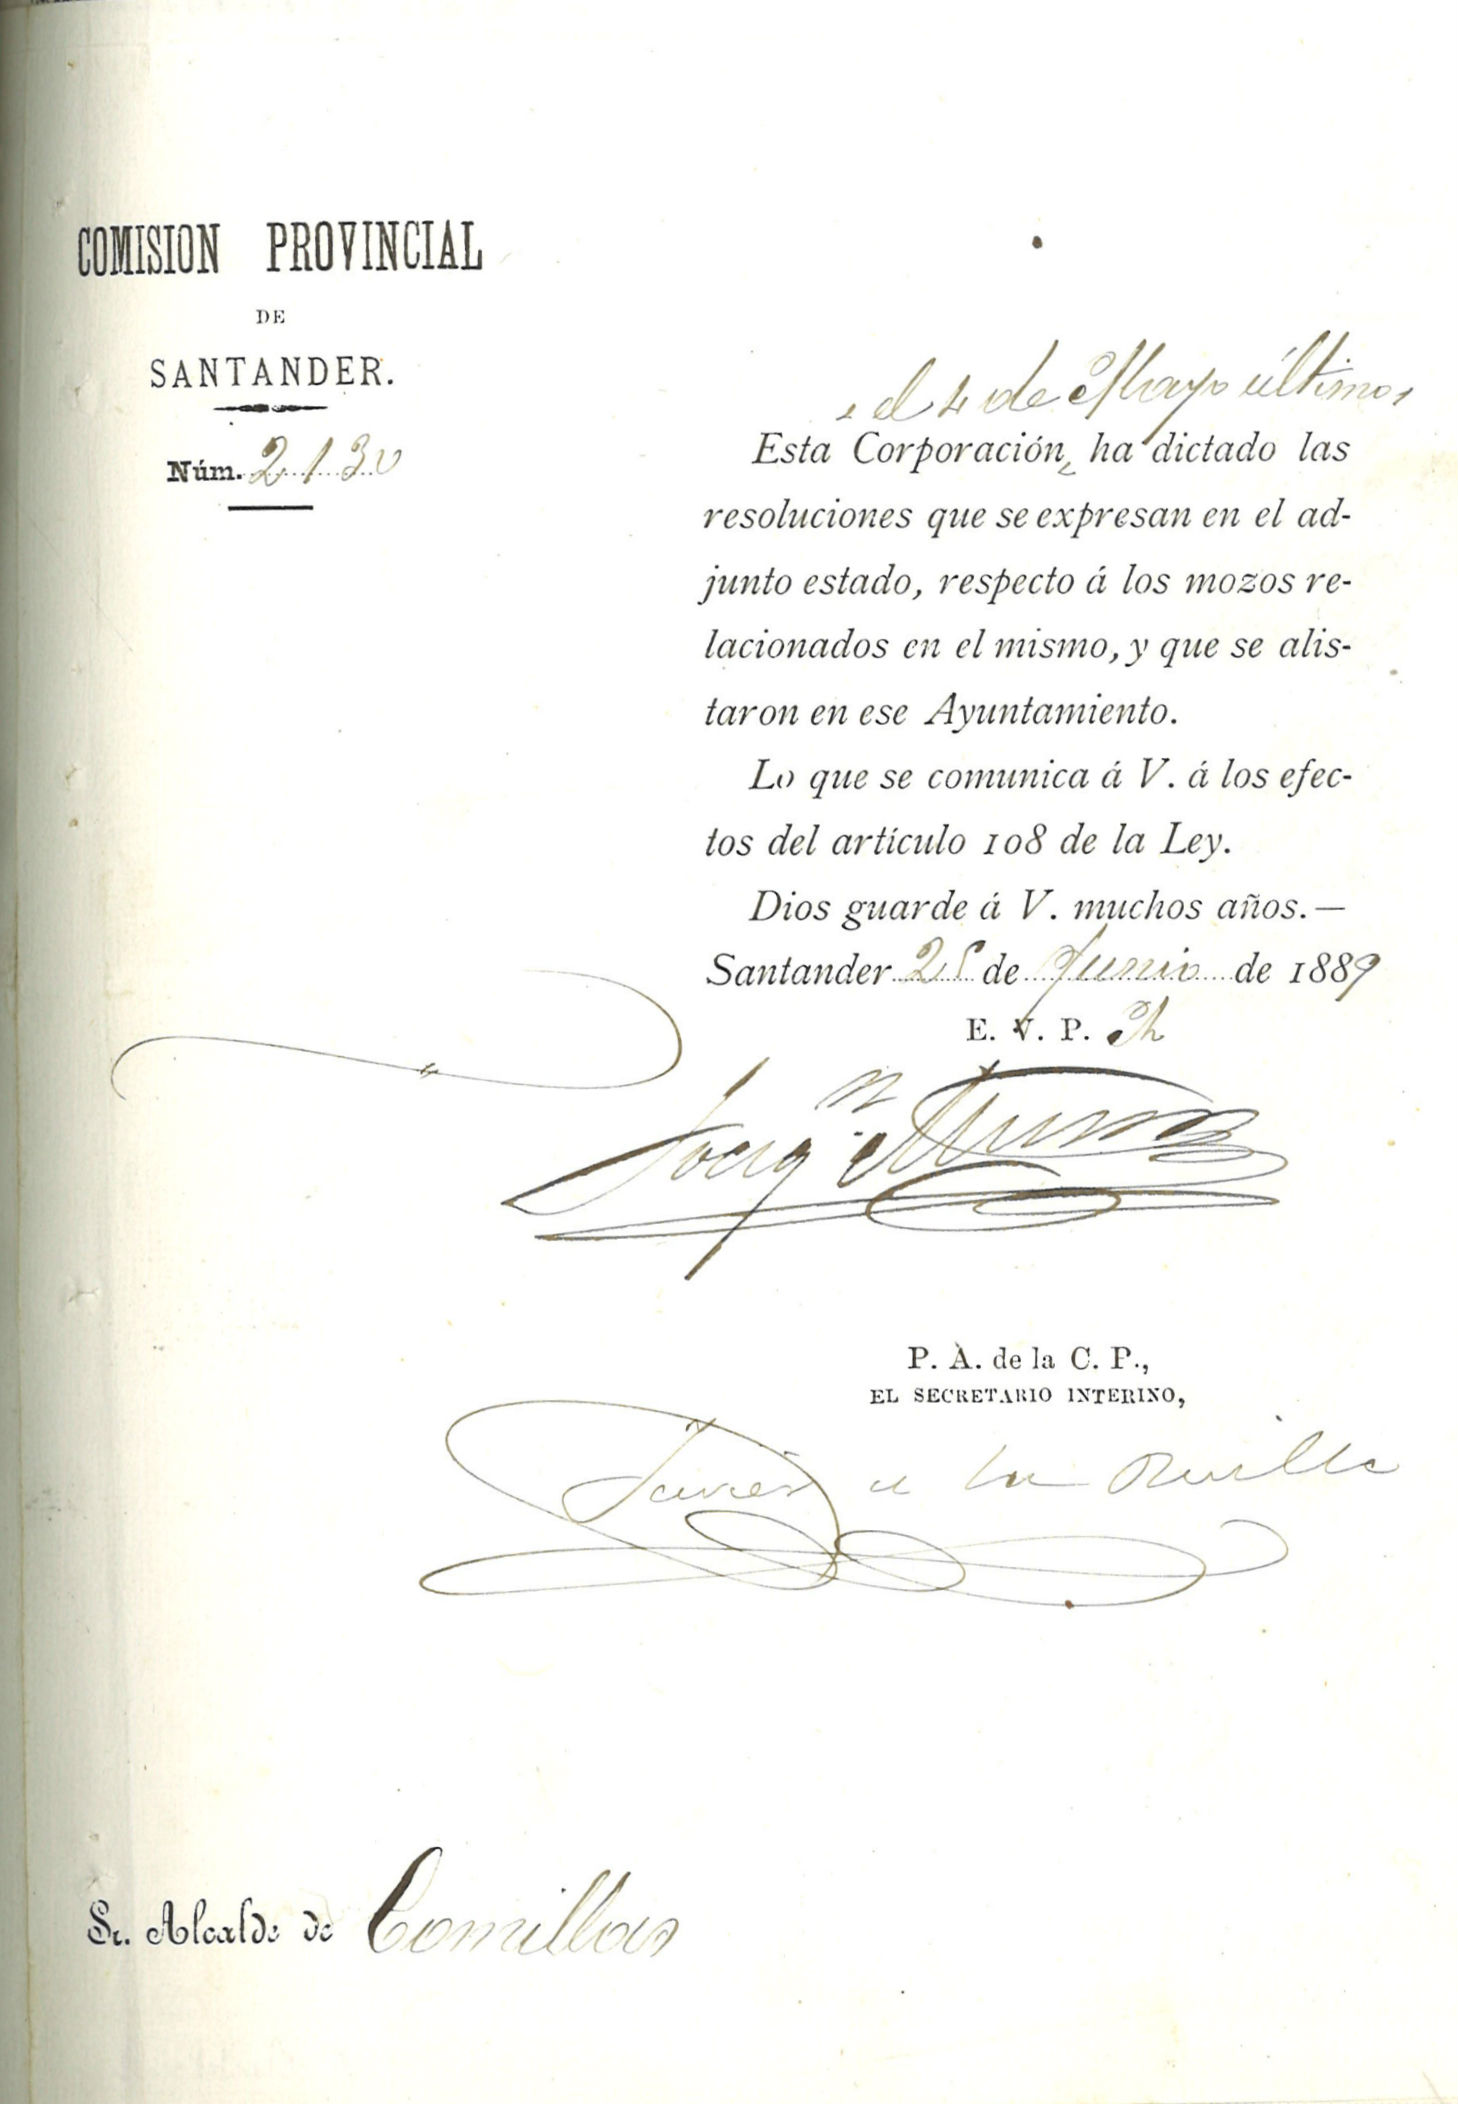 COMISION PROVINCIAL
DE
SANTANDER.
Núm. 2130
, el 4 de Mayo último,
Esta Corporación ha dictado las
resoluciones que se expresan en el ad-
junto estado, respecto á los mozos re-
lacionados en el mismo, y que se alis-
taron en ese Ayuntamiento.
Lo que se comunica á V. á los efec-
tos del artículo 108 de la Ley.
Dios guarde á V. muchos años.—
Santander de Junio de 1889
E. V. P.
P. A. de la C. P.,
EL SECRETARIO INTERINO,
Javier de la Revilla
Sr. Alcalde de Comillas